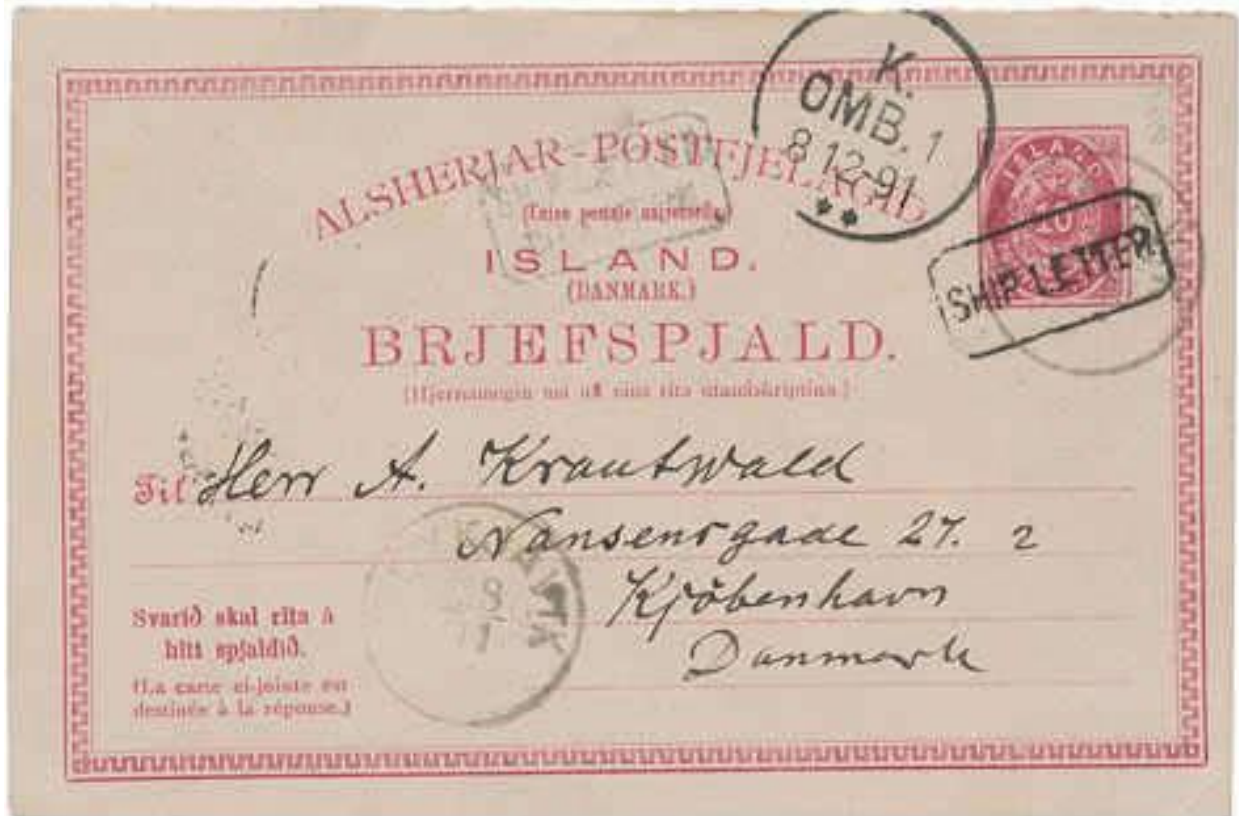 K.
OMB. 1
8 12-91
**
ALSHERJAR-PÓSTFJELAGIÐ
ISLAND
10
SHIP LETTER
ISLAND.
(DANMARK.)
BRJEFSPJALD.
(Hjernamegin má að eins rita utanáskriptina.)
Til Herr A. Krautwald
Nansensgade 27. 2
Kjöbenhavn
Danmark
Svarið skal rita á
hitt spjaldið.
(La carte ci-jointe est
destinée à la réponse.)